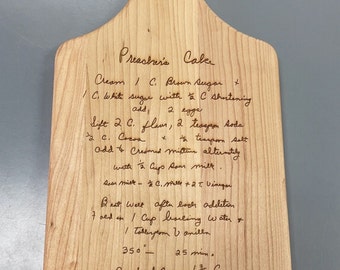 Preacher's Cake
Cream 1 C. Brown sugar +
1 C. White sugar with ½ C shortening
add, 2 eggs
Sift 2 C. flour, 2 teaspoon soda
½ C. Cocoa + ½ teaspoon salt
add to Creamed mixture alternity
with ½ Cup Sour milk.
Sour milk - ½ C. milk + 2T Vinegar
Beat well after each addition
add + 1 Cup boiling Water +
1 teaspoon Vanilla
350° - 25 min.